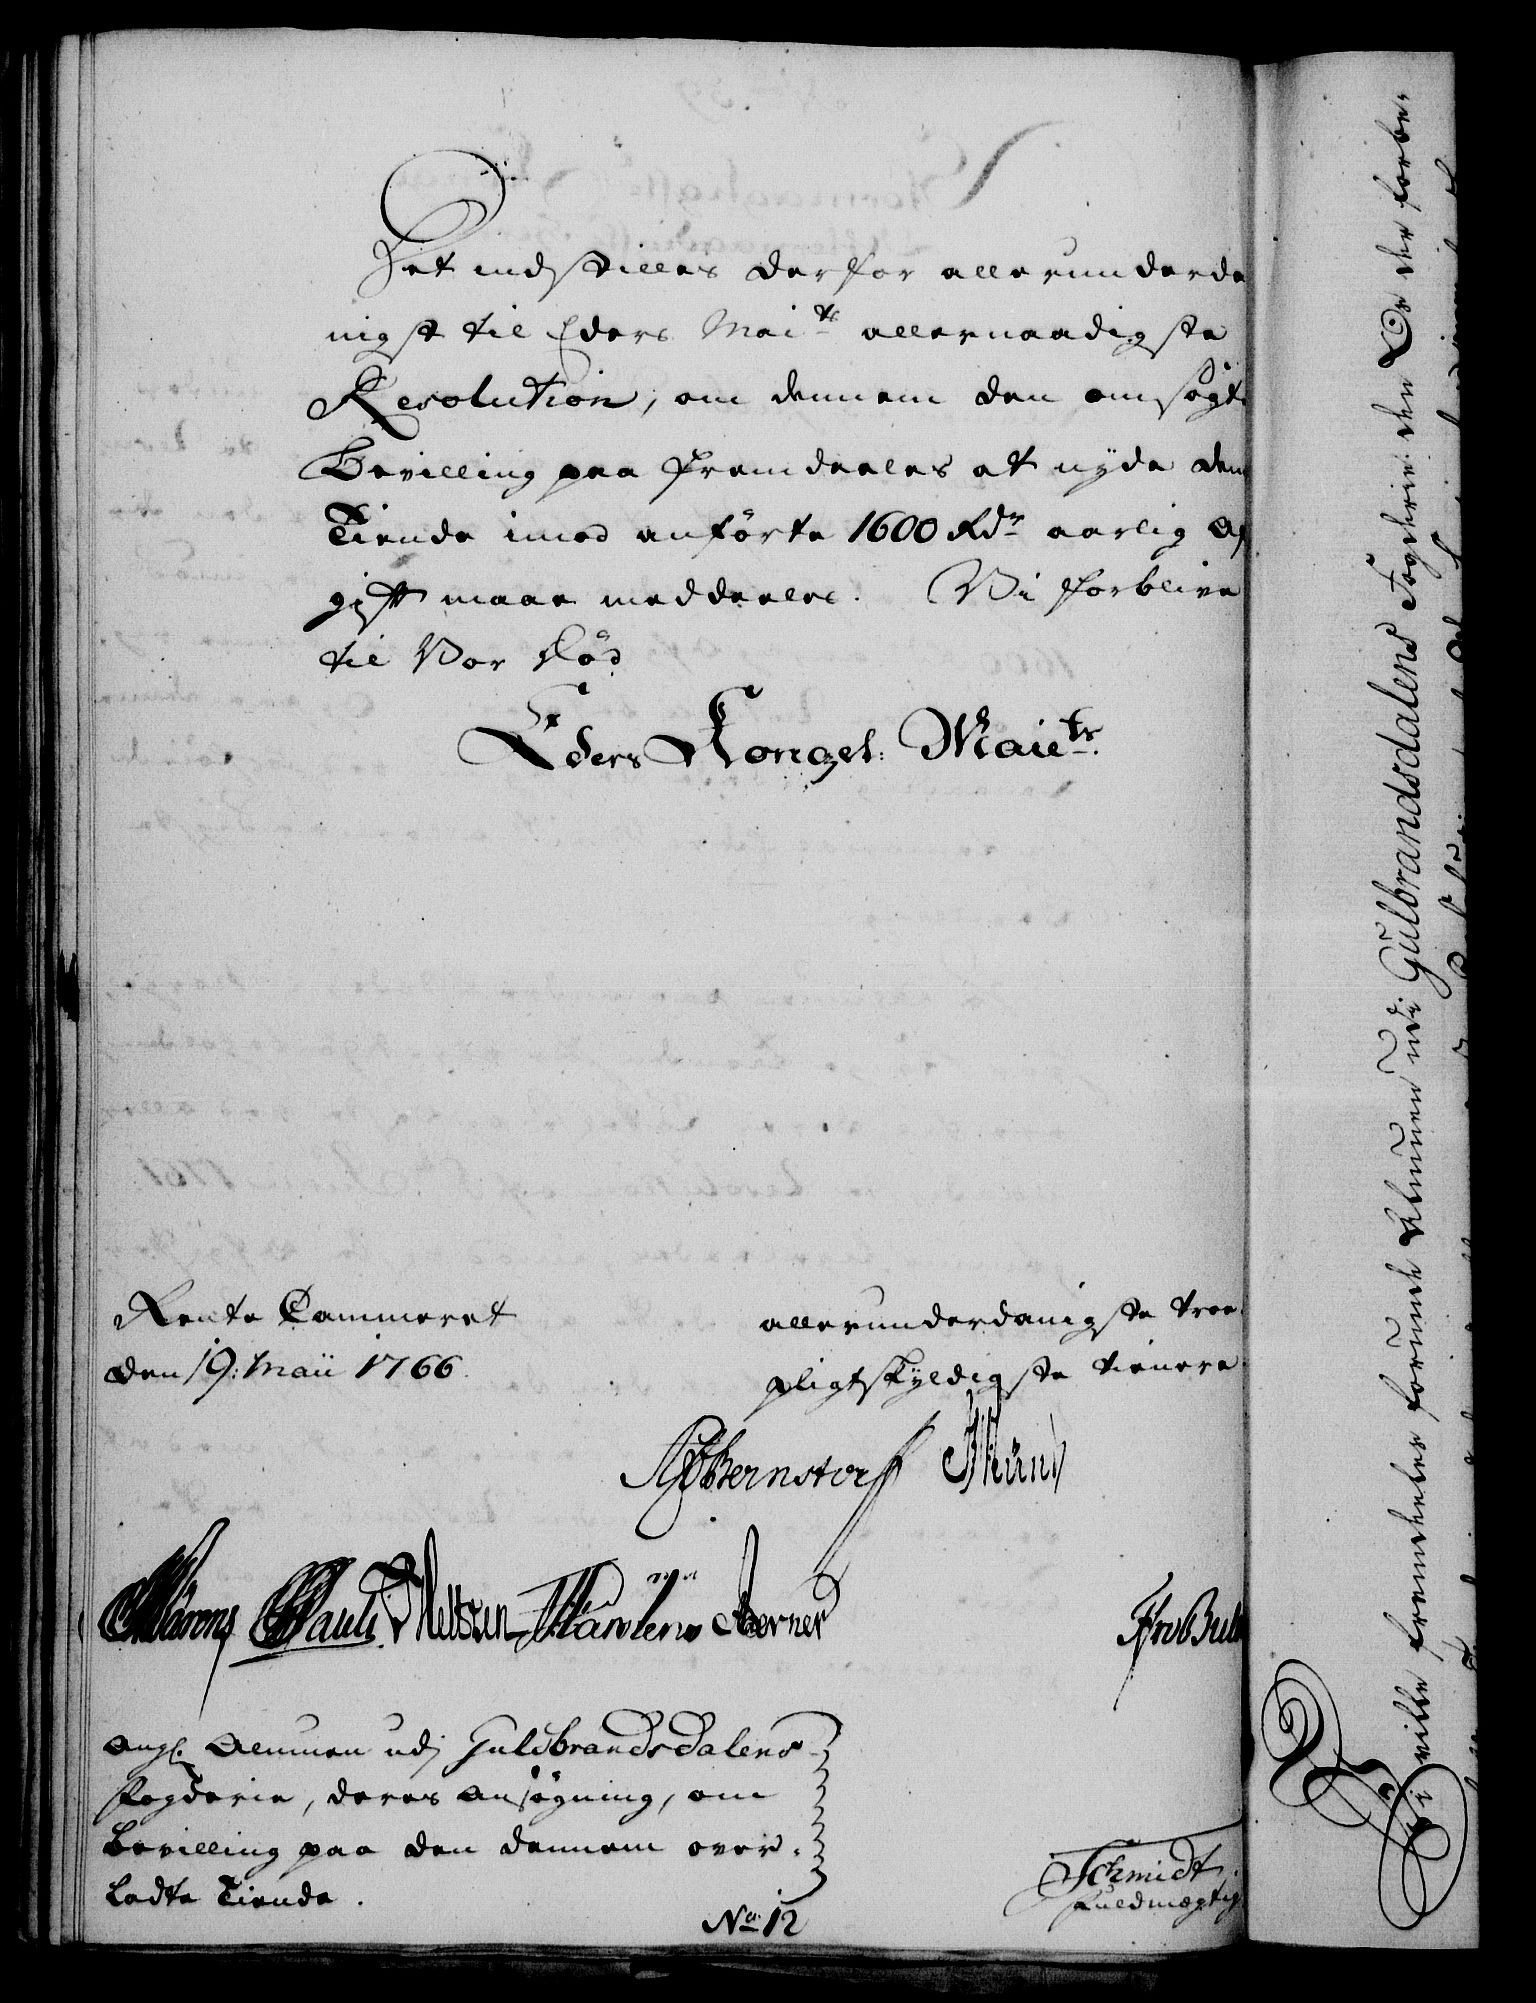 Det indstilles derfor allerunderda
nigst til Eders Mai<sup>ts</sup> allernaadigste
Resolution, om dennem den ansøgte
Bevilling paa fremdeeles at nyde den
Tiende imod anførte 1600 Rd<sup>r</sup> aarlig Af
gift maae meddeeles. Vi forblive
til Vor Død
Eders Kongel: Maie<sup>ts</sup>.
Rente Cammeret
den 19: Maii 1766.
allerunderdanigste troe
pligtskyldigste tienere
Bernstorff
Pauli Neltzen Kärner
angl. Almuen udj Guldbrandsdalens
Fogderie, deres Ansøgning, om
Bevilling paa den dennem over-
ladte Tiende.
N<sup>o</sup> 12
Schmidt.
Fuldmægtig
Vi ville fremdeeles forunde Almuen udi Gulbrandsdalens Fogderie den